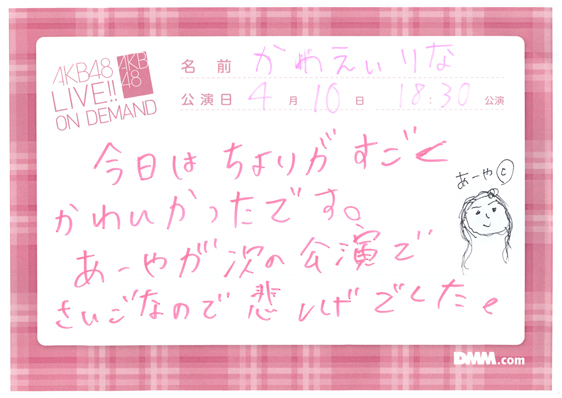 AKB48
LIVE!!
ON DEMAND
AKB
48
名前 かわえぃりな
公演日 4月10日 18:30 公演
今日はちよりがすごく
かわいかったです。
あーやが次の公演で
さいごなので悲しげでした。
あーや
DMM.com